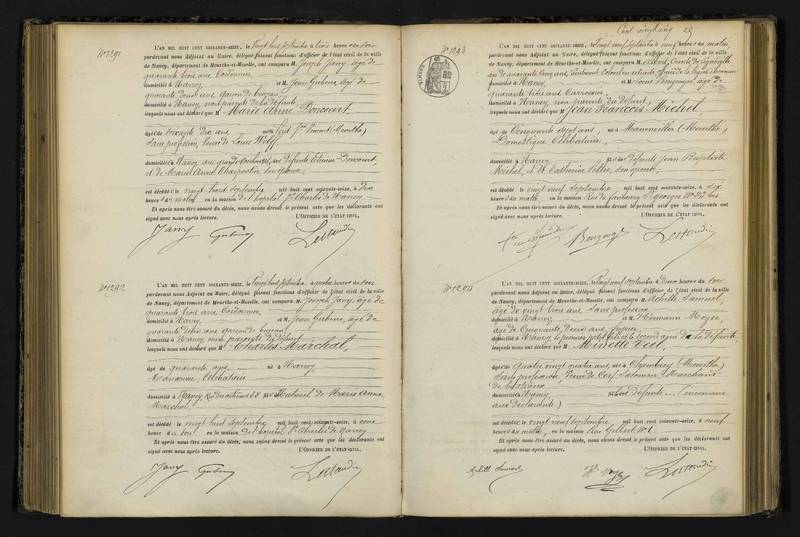 N° 1291
L'AN MIL HUIT CENT SOIXANTE-SEIZE, le Vingt huit Septembre à trois heures du soir
pardevant nous Adjoint au Maire, délégué faisant fonctions d'officier de l'état civil de la ville
de Nancy, département de Meurthe-et-Moselle, ont comparu M. Joseph Jany, âgé de
quarante trois ans Cordonnier,
domicilié à Nancy et M. Jean
quarante deux ans, garçon de bureau
domicilié à Nancy, non parents de la défunte
lesquels nous ont déclaré que Marie Anne
âgée de soixante dix ans née à (Meurthe)
sans profession, Veuve de Louis Wolff
domiciliée à Nancy fille des défunts Etienne
et de Marie Anne Charpentier, son épouse,
est décédée le vingt huit septembre mil huit cent soixante-seize, à dix
heures du matin, en la maison de l'hôpital St Charles de Nancy
Et après nous être assuré du décès, nous avons dressé le présent acte que les déclarants ont
signé avec nous après lecture. L'OFFICIER DE L'ÉTAT CIVIL,
Jany
N° 1292
L'AN MIL HUIT CENT SOIXANTE-SEIZE, le Vingt huit Septembre à quatre heures du soir
pardevant nous Adjoint au Maire, délégué faisant fonctions d'officier de l'état civil de la ville
de Nancy, département de Meurthe-et-Moselle, ont comparu M. Joseph Jany, âgé de
quarante trois ans Cordonnier,
domicilié à Nancy et M. Jean âgé de
quarante deux ans garçon de bureau
domicilié à Nancy non parents du défunt
lesquels nous ont déclaré que Charles Marchal,
âgé de quarante ans né à Nancy
Manœuvre, Célibataire
domicilié à Nancy fils naturel de Marie Anne
Marchal
est décédé le vingt huit septembre mil huit cent soixante-seize, à onze
heures du en la maison de l'hôpital St Charles de Nancy
Et après nous être assuré du décès, nous avons dressé le présent acte que les déclarants ont
signé avec nous après lecture. L'OFFICIER DE L'ÉTAT CIVIL,
Jany
Cent vingt cinq
N° 1293
L'AN MIL HUIT CENT SOIXANTE-SEIZE, le Vingt neuf Septembre à neuf heures du matin
pardevant nous Adjoint au Maire, délégué faisant fonctions d'officier de l'état civil de la ville
de Nancy, département de Meurthe-et-Moselle, ont comparu M. Albert, Comte de
âgé de quarante cinq ans, Lieutenant Colonel en retraite
domicilié à Nancy et M. Louis âgé de
quarante trois ans Carrossier
domicilié à Nancy, non parents du défunt,
lesquels nous ont déclaré que Jean François Michel,
âgé de Cinquante sept ans, né à (Meurthe)
Domestique Célibataire,
domicilié à Nancy fils des défunts Jean Baptiste
Michel, et de Catherine son épouse,
est décédé le vingt neuf septembre mil huit cent soixante-seize, à six
heures du matin, en la maison Rue du faubourg St Georges N° 92 bis
Et après nous être assuré du décès, nous avons dressé le présent acte que les déclarants ont
signé avec nous après lecture. L'OFFICIER DE L'ÉTAT CIVIL,
N° 1294
L'AN MIL HUIT CENT SOIXANTE-SEIZE, le Vingt neuf Septembre à deux heures du soir
pardevant nous Adjoint au Maire, délégué faisant fonctions d'officier de l'état civil de la ville
de Nancy, département de Meurthe-et-Moselle, ont comparu M. Achille Samuel,
âgé de vingt trois ans, sans profession
domicilié à Nancy et M. Hermann Meyer,
âgé de Cinquante deux ans
domicilié à Nancy, le premier petit fils et le second ami de la défunte
lesquels nous ont déclaré que Minette Veil,
âgée de quatre vingt quatre ans, née à (Meurthe)
sans profession, Veuve de Cerf Salomon, Marchand
de bestiaux
domiciliée à Nancy fille des défunts (inconnus
aux déclarants)
est décédée le vingt neuf septembre mil huit cent soixante-seize, à neuf
heures du matin, en la maison Rue Gilbert N° 1
Et après nous être assuré du décès, nous avons dressé le présent acte que les déclarants ont
signé avec nous après lecture. L'OFFICIER DE L'ÉTAT CIVIL,
Achille Samuel